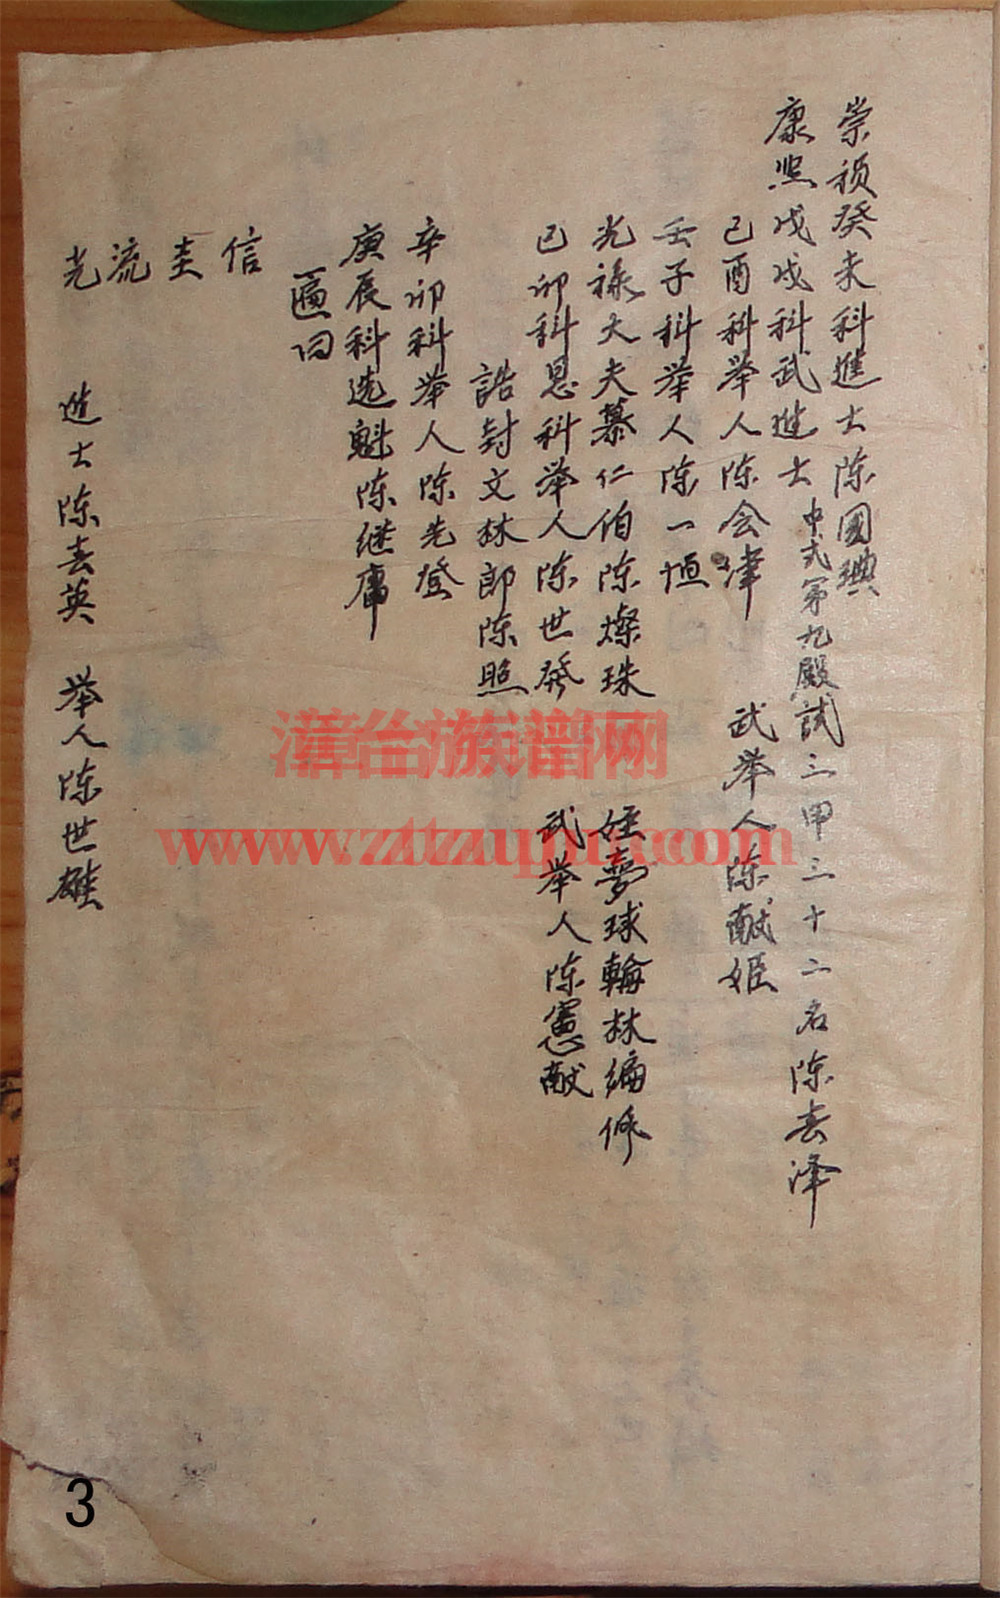 崇祯癸未科進士陈國琠
康熙戊戌科武進士中式第九殿試三甲三十二名陈春泽
己酉科举人陈会津 武举人陈献姬
壬子科举人陈一恒
光禄大夫慕仁伯陈燦珠 姪夢球翰林编修
己卯科恩科举人陈世發 武举人陈憲献
誥封文林郎陈照
辛卯科举人陈光登
庚辰科选魁陈继庸
匾曰
信圭流光
進士陈春英 举人陈世雄
漳台族谱网
www.zttzupu.com
3